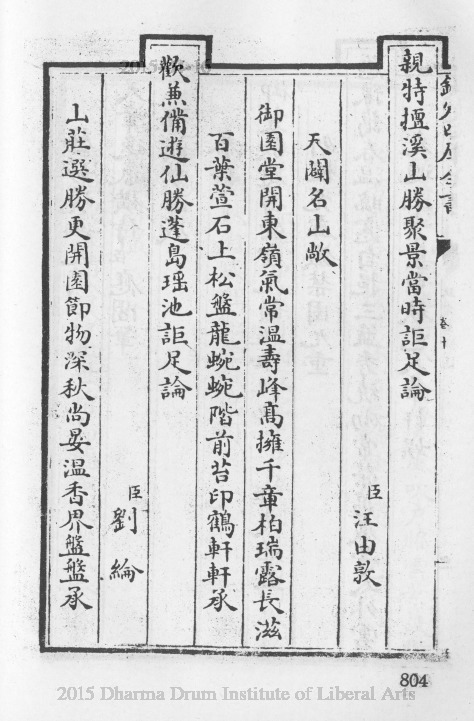 親特擅溪山勝聚景當時詎足論
臣汪由敦
天闢名山敞
御園堂開東嶺氣常温壽峰髙擁千章柏瑞露長滋
百葉萱石上松盤龍蜿蜿階前苔印鶴軒軒承
歡兼備遊仙勝蓬島瑶池詎足論
臣劉綸
山莊選勝更開園節物深秋尚晏温香界盤盤承
欽定四庫全書
卷十
804
2015 Dharma Drum Institute of Liberal Arts